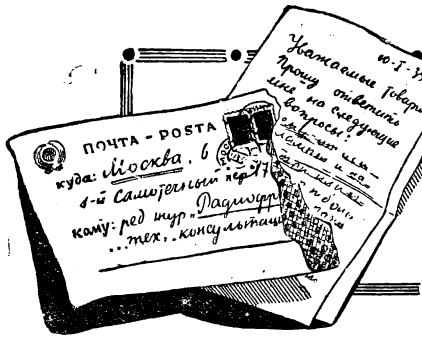 ПОЧТА - POSTA
куда: Москва, 6
1-й Самотечный пер 17
кому: ред жур "Радиофр
"тех. консультац
10-I-3
Уважаемые Товари
Прошу ответить
мне на следующие
вопросы: